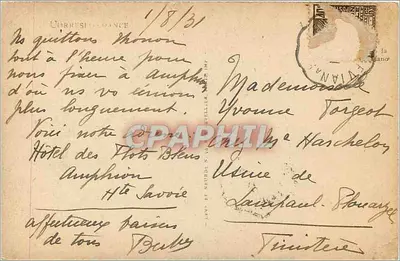 CORRESPONDANCE
1/8/31
Nous quittons Thonon
tout à l'heure pour
nous fixer à Amphion
d'où ns vs écrirons
plus longuement.
Voici notre adresse
Hôtel des Flots Bleus
Amphion
Hte Savoie
affectueux baisers
de tous
Mademoiselle
Yvonne Forgeot
chez Mr Harschelos
Usine de
Lampaul-Plouarzel
Finistère
CPARAMA